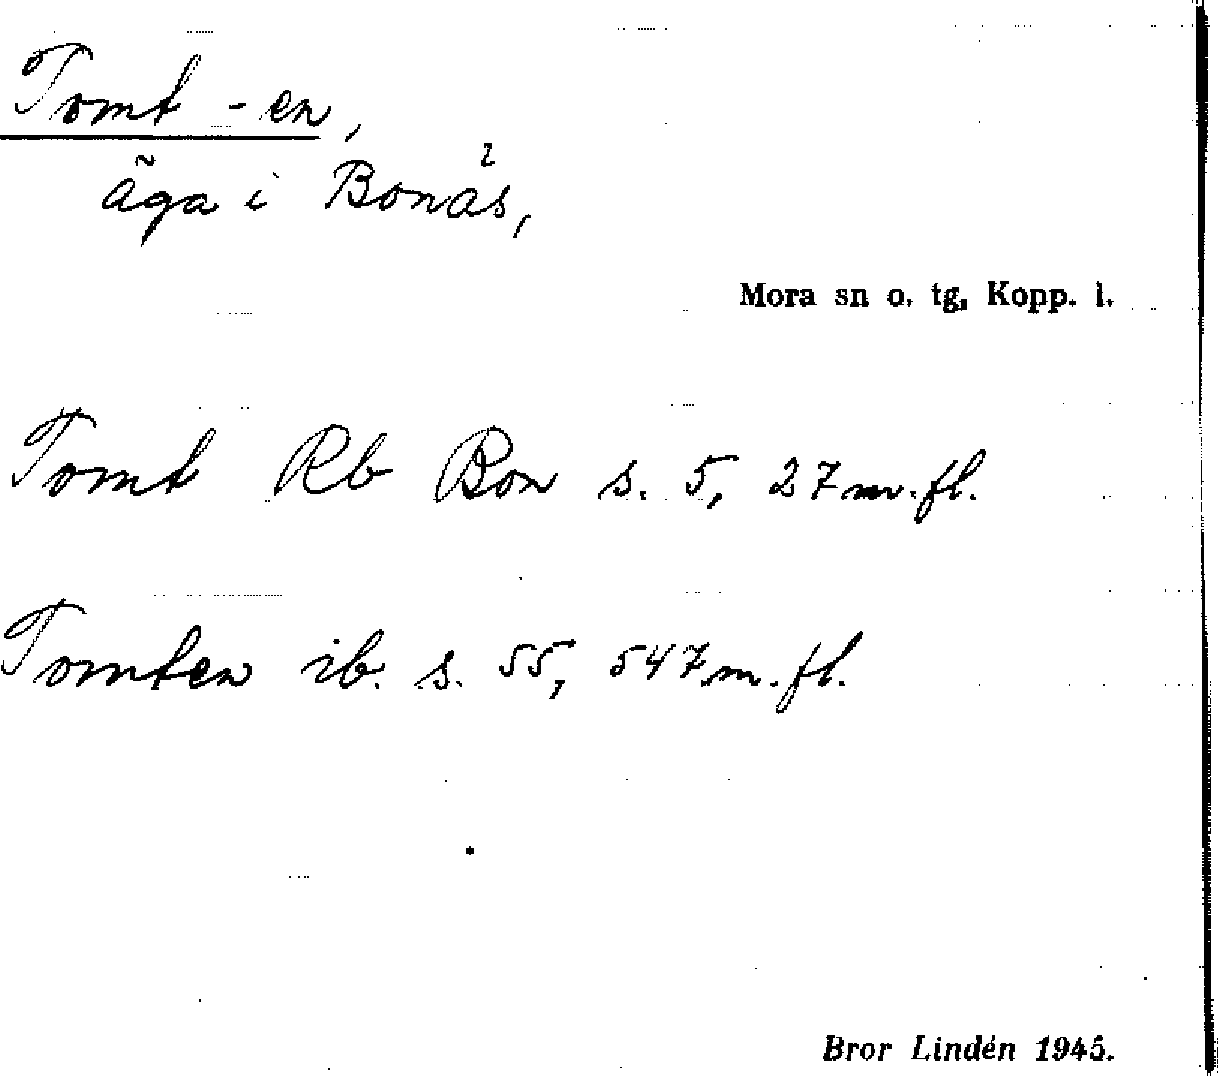 Tomt -en,
äga i Bonäs,
Mora sn o. tg, Kopp. l.
Tomt Rb Bon s. 5, 27 m.fl.
Tomten ib. s. 55, 547 m.fl.
Bror Lindén 1945.